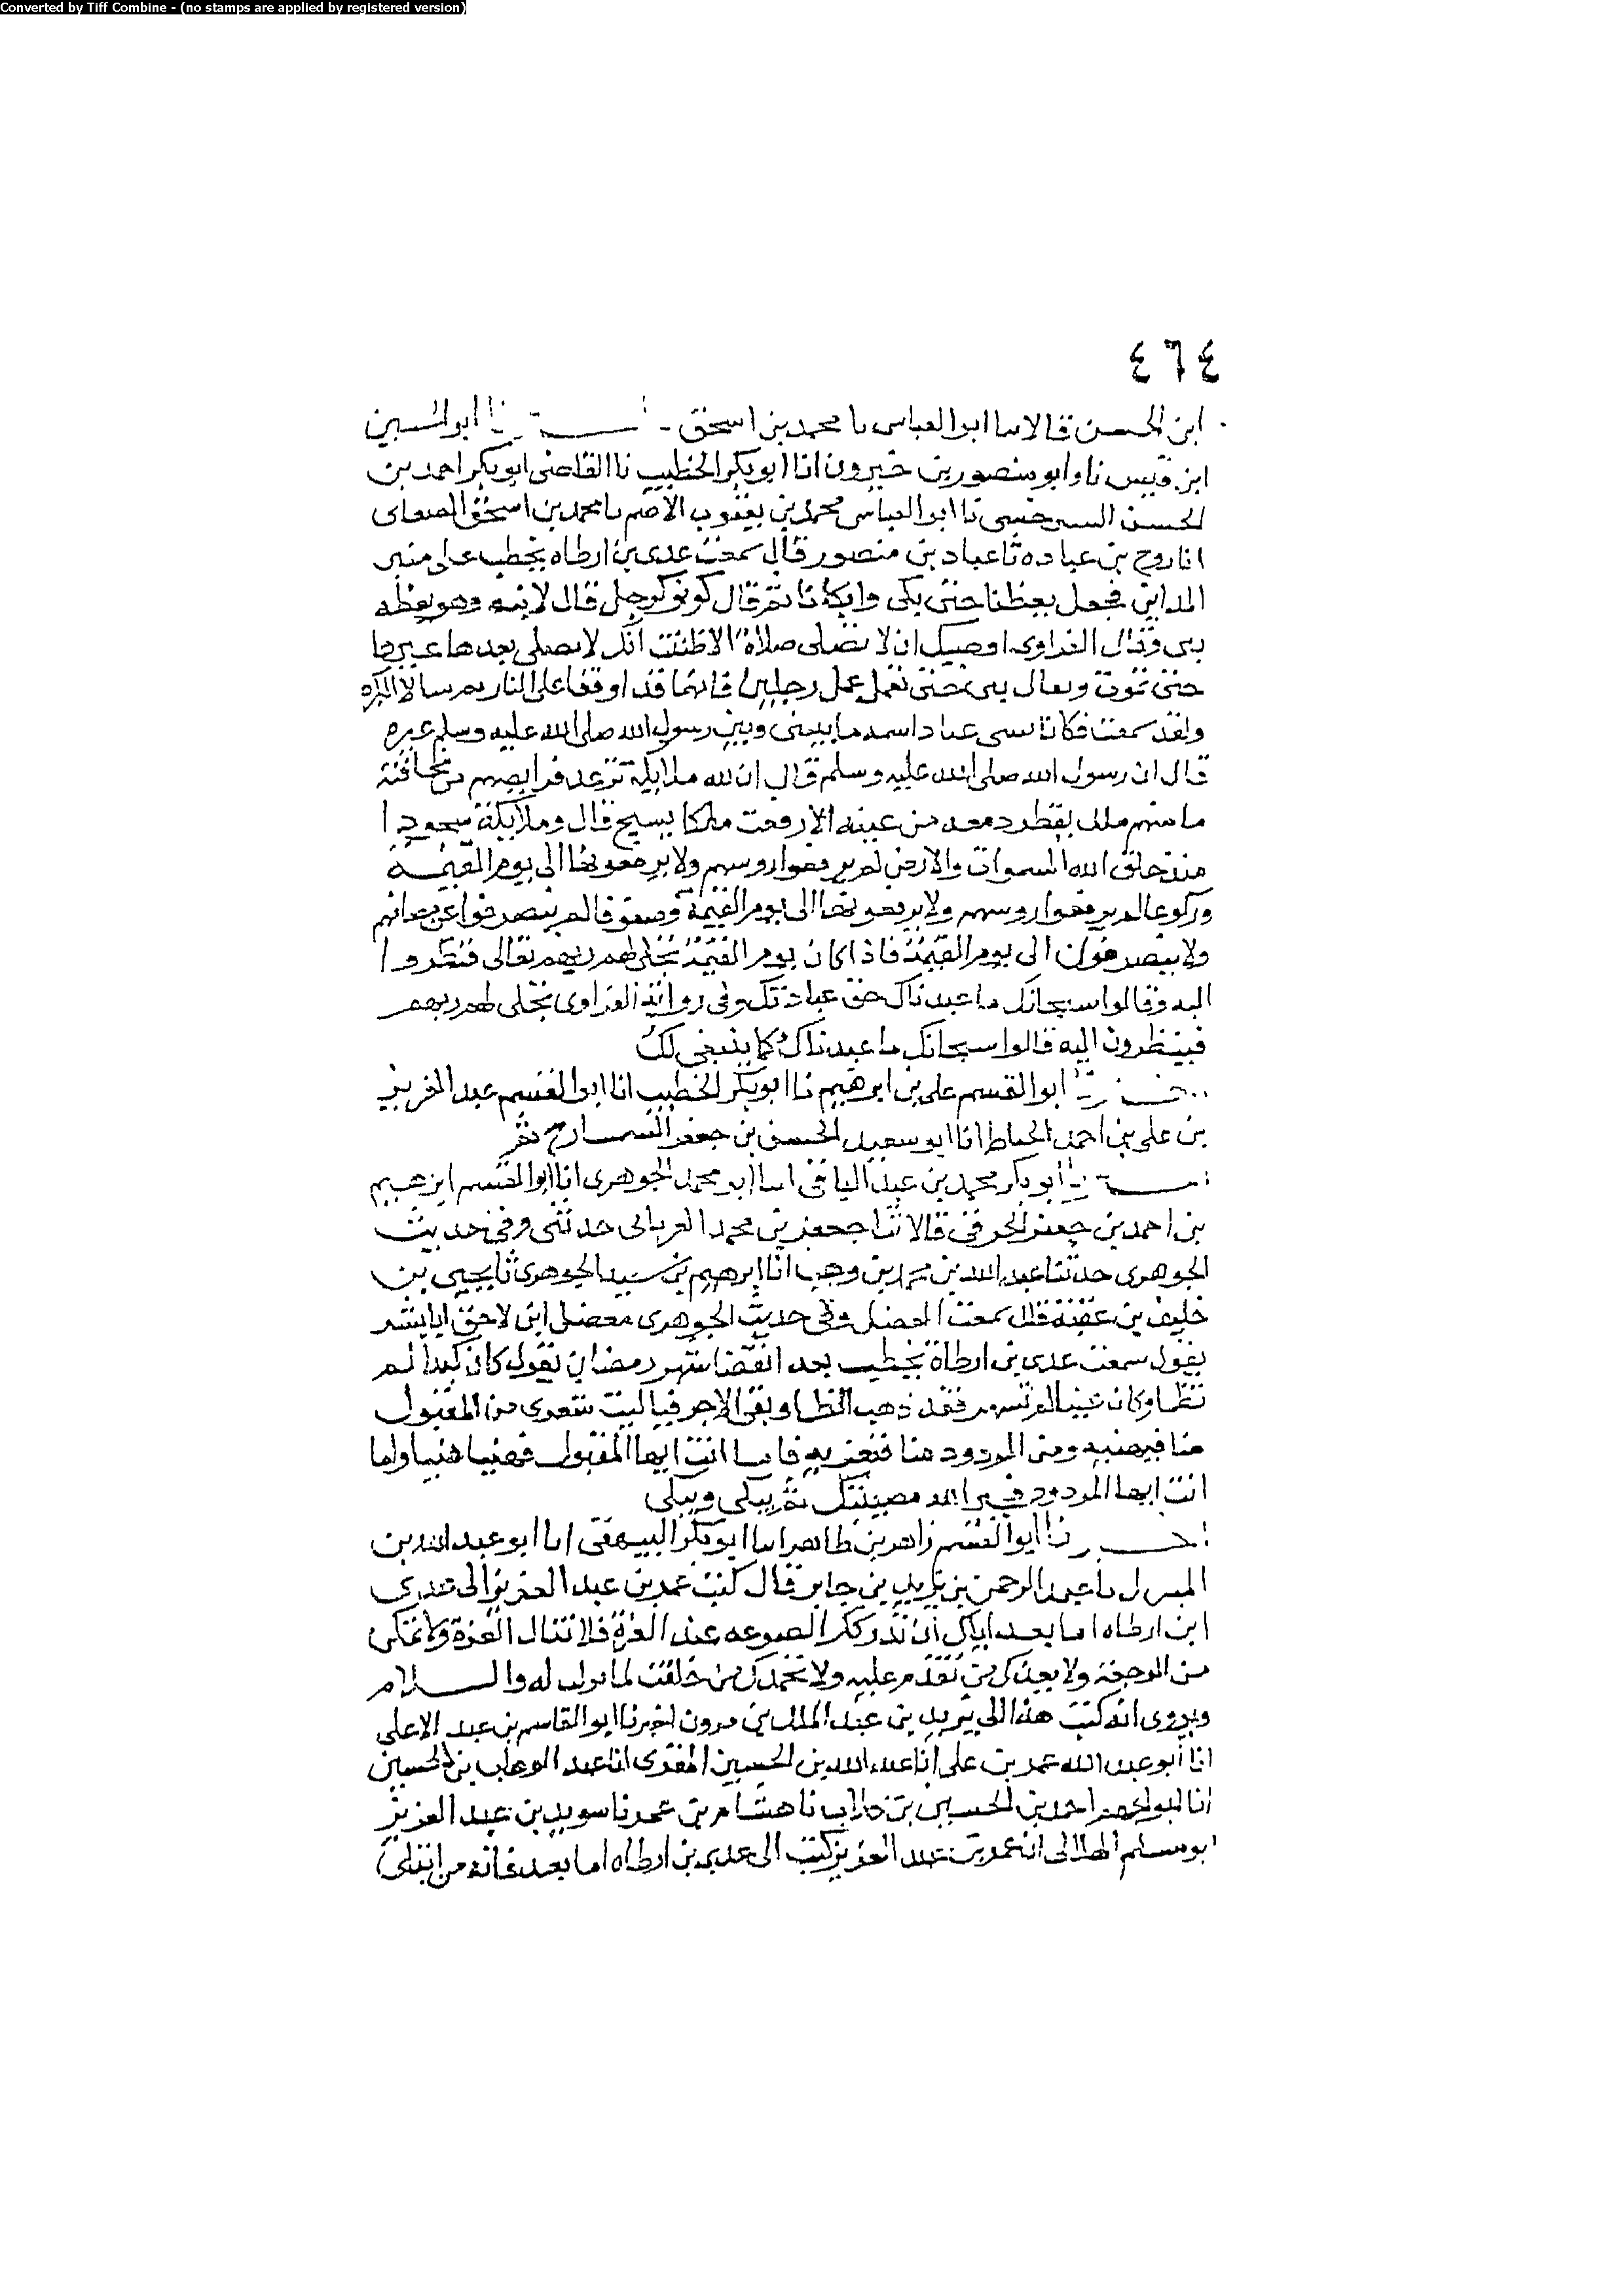 Converted by Tiff Combine - (no stamps are applied by registered version)
٤٦٤
ابن الحسن قالا سا ابو العباس نا محمد بن اسحق نا ابو الحسين
ابن قبيس نا وابو منصور بن خيرون انا ابو بكر الخطيب نا القاضى ابو بكر احمد بن
الحسن نا ابو العباس محمد بن يعقوب الاصم نا محمد بن اسحق الصعاى
انا روح بن عباده ثنا عباد بن منصور قال سمعت عدى بن ارطاه يخطب على منبر
المداين فجعل يعظنا حتى بكى وابكانا ثم قال كونو كرجل قال لابنه وهو يعظه
بنى وقال الفراوى اوصيك ان لا تصلى صلاة الا ظننت انك لا تصلى بعدها غيرها
حتى تموت وتعال بنى حتى نعمل عمل رجلين كانهما قد اوقفا على النار ثم سالا الكره
ولقد سمعت فلانا نسى عباد اسمه ما بينى وبين رسول الله صلى الله عليه وسلم غيره
قال ان رسول الله صلى الله عليه وسلم قال ان لله ملايكة ترعد فرايصهم من مخافته
ما منهم ملك يقطر دمعه من عينه الا وقعت ملكا يسبح قال وملايكة سجودا
منذ خلق الله السموات والارض لم يرفعوا روسهم ولا يرفعونها الى يوم القيمه
وركوعا لم يرفعوا روسهم ولا يرفعونها الى يوم القيمة وصفوفا لم ينصرفوا عن مصافهم
ولا ينصرفون الى يوم القيمة فاذا كان يوم القيمة تجلى لهم ربهم تعالى فنظروا
اليه وقالوا سبحانك ما عبدناك حق عبادتك وفى رواية الفراوى تجلى لهم ربهم
فينظرون اليه قالوا سبحانك ما عبدناك كما ينبغى لك
ابو القسم على بن ابرهيم نا ابو بكر الخطيب انا ابو القسم عبد العزيز
بن على بن احمد الخياط انا ابو سعيد الحسن بن جعفر السمسار ح ثم
ابو بكر محمد بن عبد الباقى انا ابو محمد الجوهرى انا ابو القسم ابرهيم
بن احمد بن جعفر الخرقى قالا ثنا جعفر بن محمد الفريابى حدثنى وفى حديث
الجوهرى حدثنا عبد الله بن محمد بن وهب انا ابرهيم بن سعيد الجوهرى ثنا يحيى بن
خليف بن عقبة قال سمعت المفضل وفى حديث الجوهرى مفضل ابن لاحق ابا بشر
يقول سمعت عدى بن ارطاة يخطب بعد انقضا شهر رمضان يقول كان كبدا لم
تظما وكان عينا لم تسهر فقد ذهب الظما وبقى الاجر فيا ليت شعرى من المقبول
منا فيهنيه ومن المردود منا فنعزيه فاما انت ايها المقبول فهنيا هنيا واما
انت ايها المردود فجبر الله مصيبتك ثم يبكى ويبكى
اخبرنا ابو القسم زاهر بن طاهر انا ابو بكر البيهقى انا ابو عبد الله بن
نا عبد الرحمن بن يزيد بن جابر قال كتب عمر بن عبد العزيز الى عدى
ابن ارطاه اما بعد اياك ان تدركك الصرعه عند الغرة فلا تقال العثرة ولا تمكن
من الرجعة ولا يعذرك من تقدم عليه ولا يحمدك من خلفت لما تركت له والسلام
ويروى انه كتب هذا الى يزيد بن عبد الملك بن مرون اخبرنا ابو القاسم بن عبد الاعلى
انا ابو عبد الله عمر بن على انا عبد الله بن الحسين المقرى انا عبد الوهاب بن الحسين
انا ابو الجهم احمد بن الحسين بن طلاب نا هشام بن عمر نا سويد بن عبد العزيز
ابو مسلم الهلالى ان عمر بن عبد العزيز كتب الى عدى بن ارطاه اما بعد فانه من ابتلى